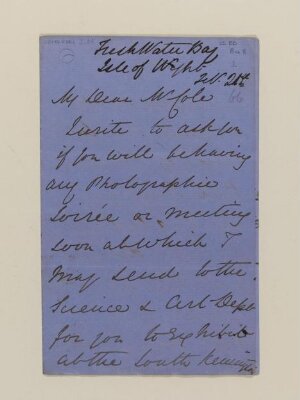 Fresh Water Bay
Isle of Wight
Feb. 21st
66
My Dear Mr Cole
I write to ask you
if you will be having
any Photographic
Soirée or meeting
soon at which I
may send to the
Science & Art Dept
for you to Exhibit
at the South Kensington